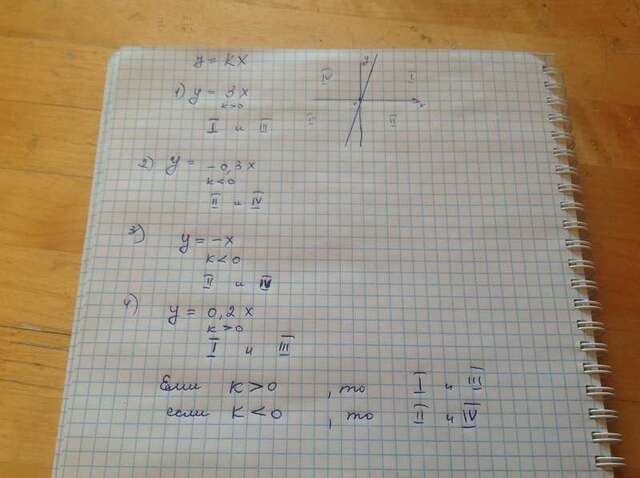 y = kx
1) y = 3x
k>0
I и III
2) y = -0,3x
k<0
II и IV
3) y = -x
k<0
II и IV
4) y = 0,2x
k>0
I и III
Если k>0, то I и III
если k<0, то II и IV
y
IV I
x
III